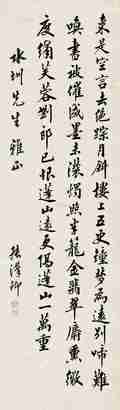 來是空言去絕踪月斜樓上五更鐘夢為遠別啼難
喚書被催成墨未濃蠟照半籠金翡翠麝熏微
度繡芙蓉劉郎已恨蓬山遠更隔蓬山一萬重
先生雅正